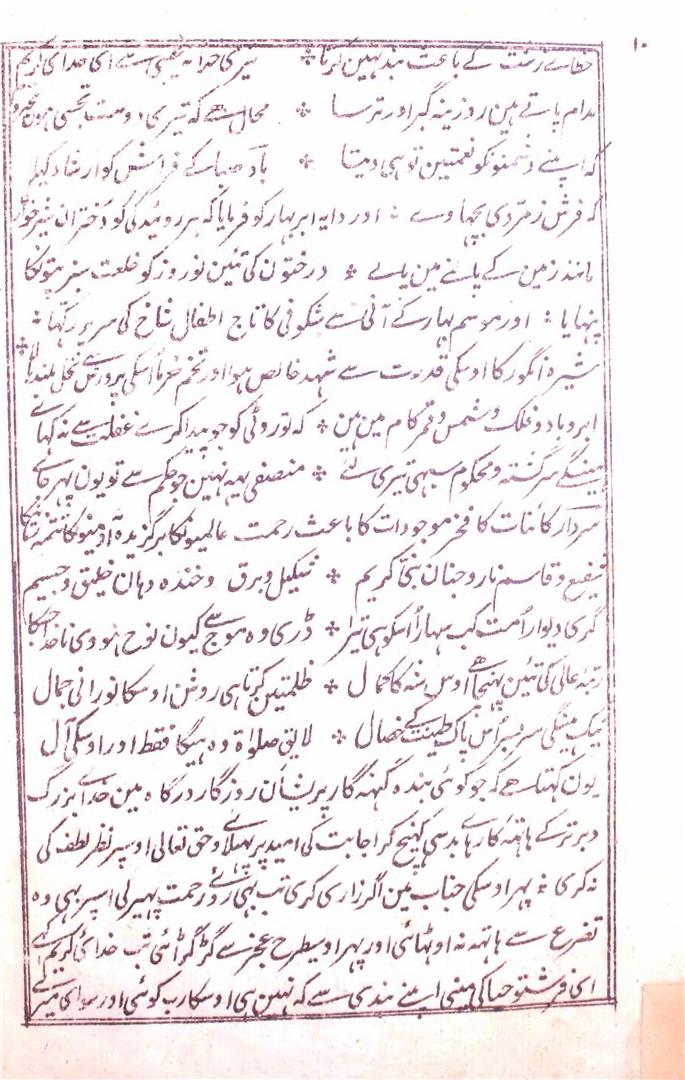 ١٠
خطاے زشت کے باعث بند نہین کرتا ٭ تیری خزانہ غیبی سے ای خدای کریم
مدام پاتے ہین روزینہ گبر اور ترسا ٭ محال ہے کہ تیری دوست تجھسی ہون
کہ اپنے دشمنو کو نعمتین تو ہی دیتا ٭ باد صبا کے فراش کو ارشاد کیا
کہ فرش زمردی بچہاوے ٭ اور دایہ ابر بہار کو فرمایا کہ ہر روئیدگی کو دختران شیر خوار
مانند زمین کے پالنے مین پالے ٭ درختون کی تئین نوروز کو خلعت سبز پتونکا
پنہایا ٭ اور موسم بہار کے آنی سے شگوفی کا تاج اطفال شاخ کی سر پر رکہا ٭
شیرہ انگور کا اوسکی قدرت سے شہد خالص ہوا اور تخم خرما اُسکی پرورش سے نخل بلند بالا ٭
ابر و باد و فلک و شمس و قمر کام مین ہین ٭ کہ تو روٹی کو جو پیدا کرے غفلت سے نہ کہانے
ہینگے سرگشتہ و محکوم سبہی تیری لئے ٭ منصفی یہہ نہین جو حکم سے تو یون پہر جاے
سردار کائنات کا فخر موجودات کا باعث رحمت عالمیونکا برگزیدہ آدمیونکا تتمہ
شفیع و قاسم نار و جنان نبی کریم ٭ شکیل و برق و خندہ دہان خلیق و جسیم
گری دیوار اُمت کب سہارا اُسکو ہی تیرا ٭ ڈری وہ موج سے کیون نوح ہووی ناخدا جسکا
رتبۂ عالی کی تئین پہنچا ہے اوس شہ کا کمال ٭ ظلمتین کہوتا ہی روشن اوسکا نورانی جمال
نیک ہینگی سربسر اُس پاک طینت کے خصال ٭ لایق صلوٰۃ وہ ہیگا فقط اور اوسکی آل
یون کہتا ہے کہ جو کوئی بندہ گنہگار پریشان روزگار درگاہ مین خداے بزرگ
و برتر کے ہاتہہ کارہاے بد سی کہینچ کر اجابت کی امید پر پہیلاے و حق تعالی اوسپر نظر لطف کی
نہ کری ٭ پہر اوسکی جناب مین اگر زاری کری تب بہی روے رحمت پہیر لی اسپر بہی وہ
تضرع سے ہاتہہ نہ اوٹہائی اور پہر اوسیطرح عجز سے گڑگڑائی تب خدای کریم کہے
ای فرشتو حیا کی مینی اپنے بندی سے کہ نہین ہی اوسکا رب کوئی اور سوای میرے